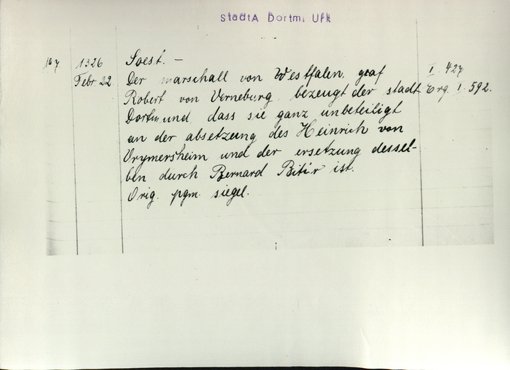 StadtA Dortm. Urk
167 1326 Soest. —
Febr 22. Der marschall von Westfalen, graf I 427
Robert von Verneburg, bezeugt der stadt Erg. I. 592.
Dortmund dass sie ganz unbeteiligt
an der absetzung des Heinrich von
Orymersheim und der ersetzung dessel-
ben durch Bernard Bitir ist.
Orig. pgm. siegel.